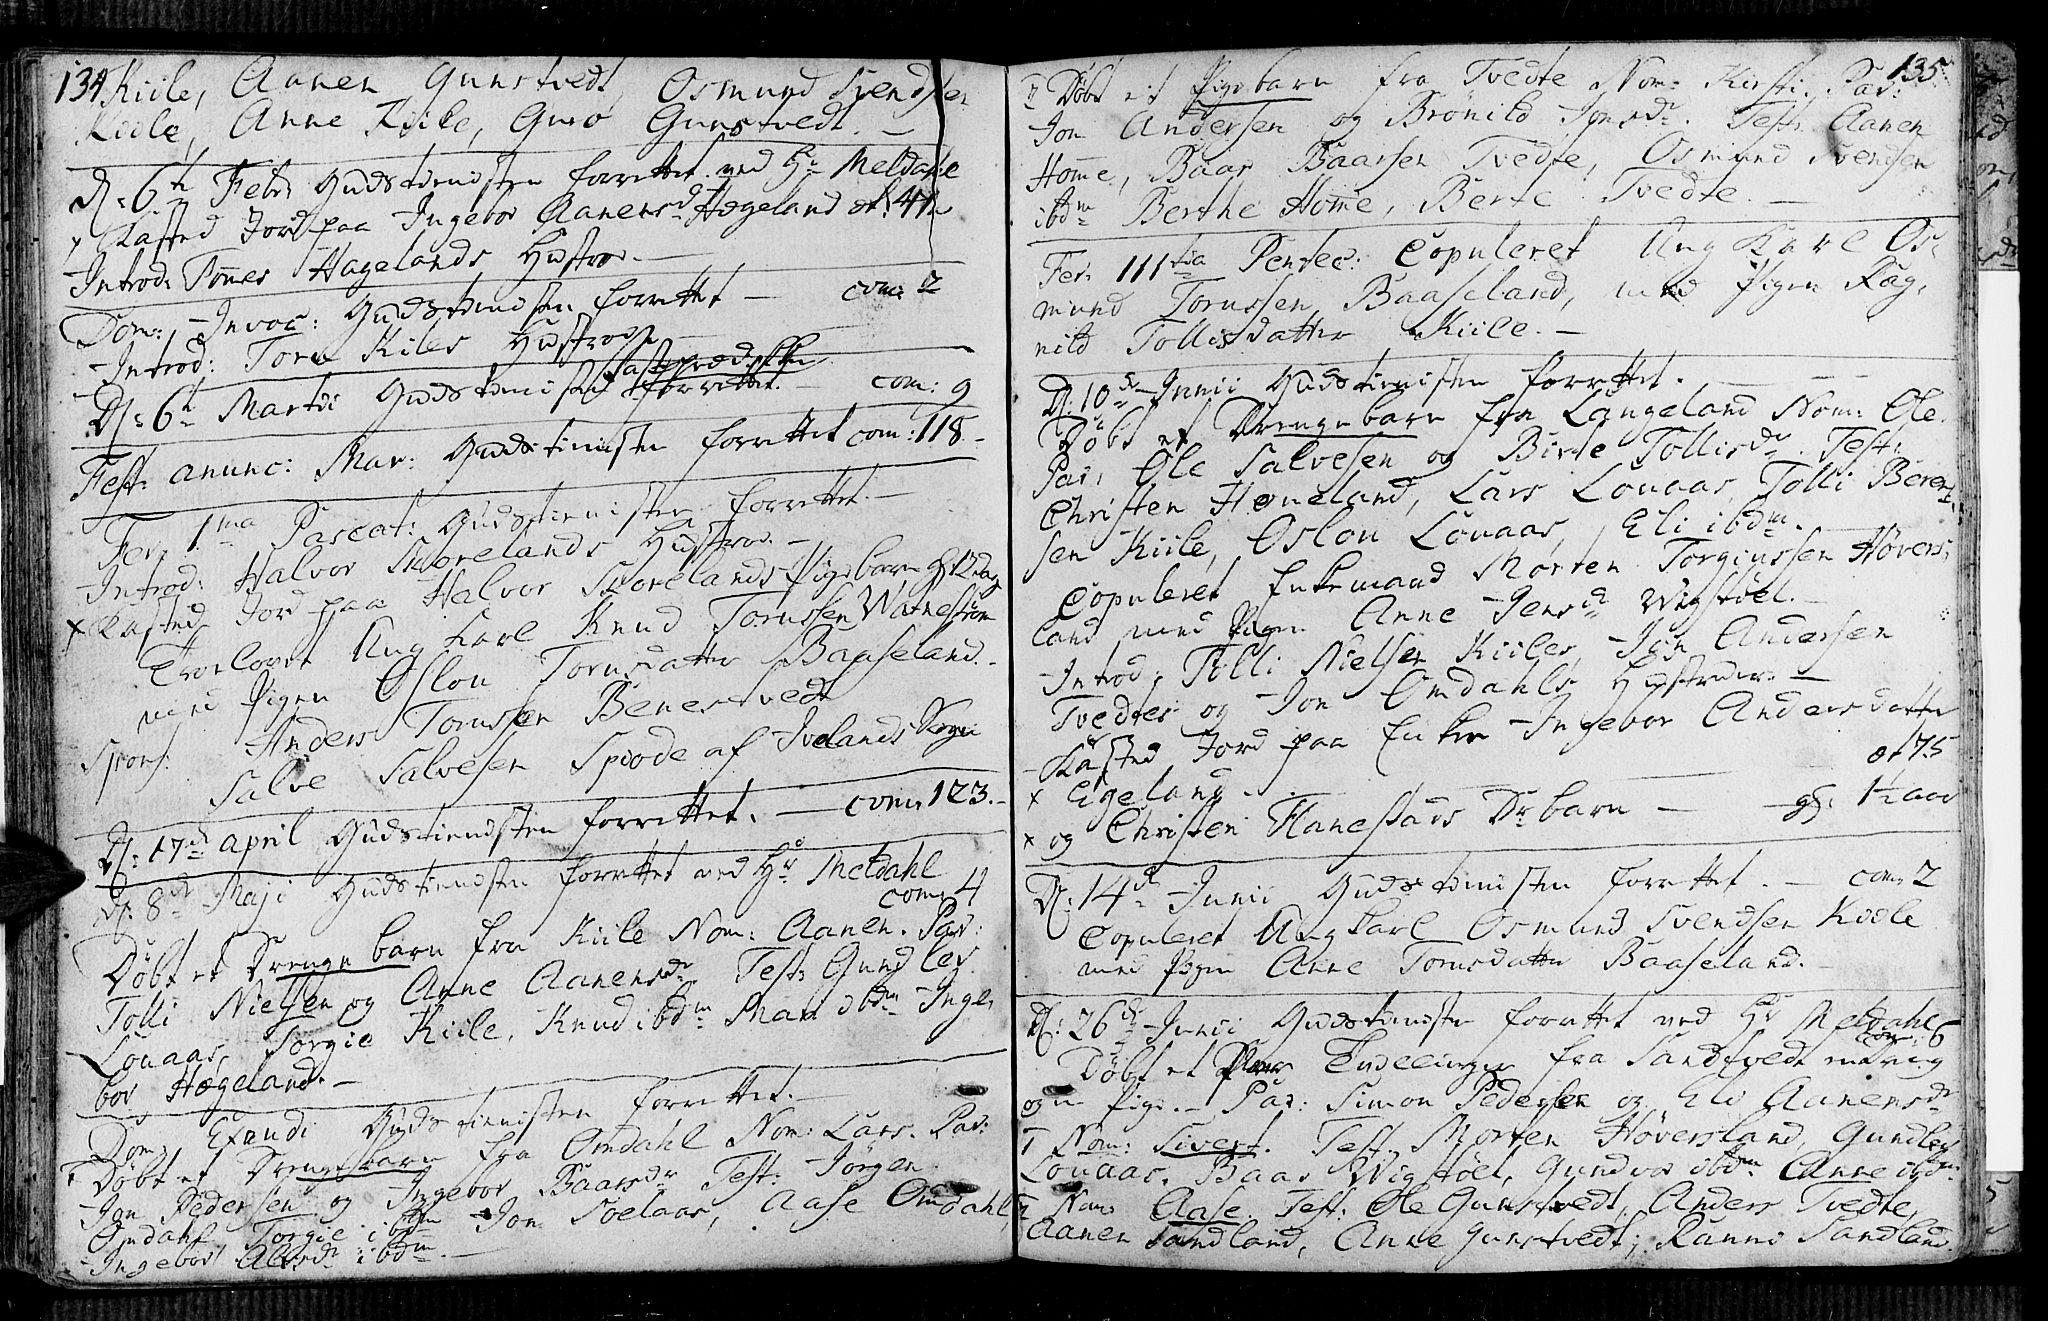 134
Kiile, Aanen Gunstvedt, Osmund Svendsen
Kodle, Anne Kiile, Guro Gunstvedt. —
D: 6te Febr: Gudstienisten forrettet ved Hr Meldahl
x Kasted Jord paa Ingebor Aanensd Hægeland æt: 41
Introd: Tomes Hægelands Hustroe. —
Dom: Invoc: Gudstienisten forrettet — com: 2
Introd: Tore Kiles Hustroe
D: 6te Martii Gudstienisten forrettet. — com: 9
Fest: anunc: Mar: Gudstienisten forrettet com: 118 –
Fer: 1ma Pascat: Gudstienisten forrettet. —
Introd: Halvor Skorelands Hustroe. —
x Kasted Jord paa Halvor Skorelands Pigebarn gl: 12 dag
Trolovet Ung Karl Knud Tornssen Watnestrøm
med Pigen Oslou Tornsdatter Baaseland.
Spons: Anders Tornssen Benestvedt
Salve Salvesen Spode af Ivelands Sogn
D: 17de april Gudstienesten forrettet. — com: 123.
D: 8de Maji Gudstienesten forrettet ved Hr Meldahl
com: 4
Døbt et Drenge barn fra Kiile Nom: Aanen. Par:
Tolli Nielsen og Anne Aanensdr Test: Gundlev
Louaas, Torgie Kiile, Knud ibdm Mari ibdm Inge-
bor Hægeland. —
Dom: Exaudi Gudstienisten forrettet. —
Døbt et Drengebarn fra Omdahl Nom: Lars. Par:
Jon Pedersen og Ingebor Baarsdr Test: Jørgen
Omdahl Torgie ibdm Jon Soelaas, Aase Omdahl,
Ingebor Alvsdr ibdm. —
135
Døbt et Pigebarn fra Tvedte Nom: Kirsti. Par:
Jon Andersen og Brønild Jonsdr. Test: Aanen
Home, Baar Baarsen Tvedte, Osmund Svendsen
ibdm Berthe Home, Berte Tvedte. —
Fer: IIItia Pentec: Copuleret Ung Karl Os-
mund Tornssen Baaseland, med Pigen Rag-
nild Tollisdatter Kiile. —
D: 10de Junii Gudstienisten forrettet. —
Døbt et Drengebarn fra Langeland Nom: Ole.
Par: Ole Salvesen og Birte Tollisdr. Test:
Christen Høneland, Lars Louaas, Tolli Berent-
sen Kiile, Oslou Louaas, Eli ibdm.
Copuleret Enkemand Morten Torgiussen Høvers-
land med Pigen Anne Jensdr Wigstøel. —
Introd: Tolli Nielsen Kiiles, Jon Andersen
Tvedtes og Jon Omdahls Hustruer. —
Kasted Jord paa Enken Ingebor Andersdatter
x Egeland. æt 75
x og Christen Flanestads Dr barn — gl: 1½ aar
D: 14de Junii Gudstienisten forrettet. — com: 2
Copuleret Ung Karl Osmund Svendsen Kodle
med Pigen Anne Tornsdatter Baaseland. —
D: 26de Junii Gudstienisten forrettet ved Hr Meldahl
com: 6
Døbt et Par Tvillinger fra Sandtvedt en Dreng
og en Pige. — Par: Simon Pedersen og Eli Aanensdr
1 Nom: Sivert. Test: Morten Høversland, Gundlev
Louaas, Baar Wigstøel, Gundvor ibdm Anne ibdm.
2 Nom: Aase. Test: Ole Gunstvedt, Anders Tvedte,
Aanen Sandland, Anne Gunstvedt, Ranni Sandland.